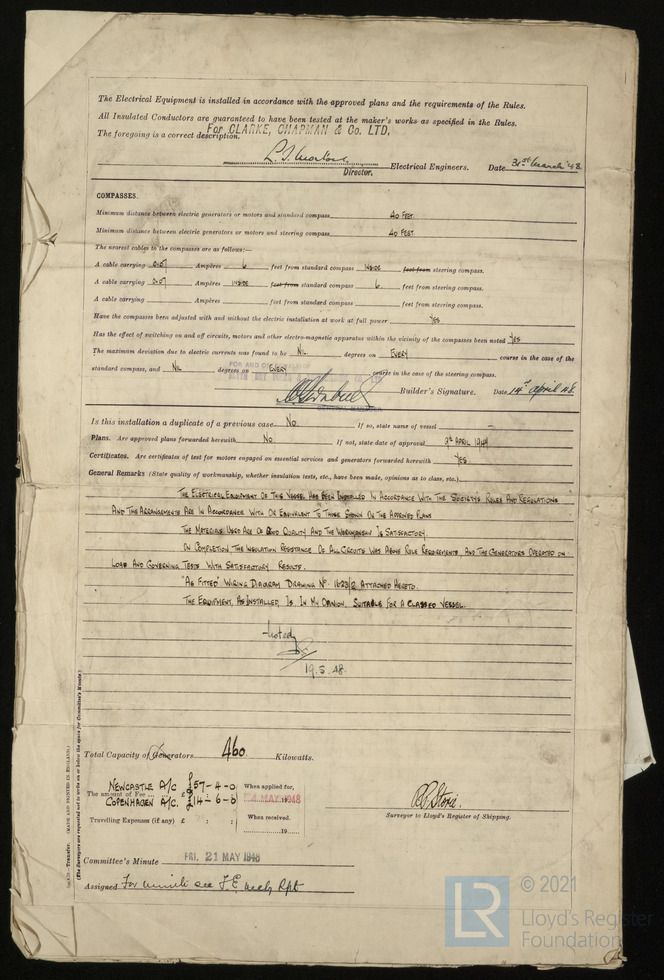 The Electrical Equipment is installed in accordance with the approved plans and the requirements of the Rules.
All Insulated Conductors are guaranteed to have been tested at the maker's works as specified in the Rules.
For CLARKE, CHAPMAN & Co. LTD.
The foregoing is a correct description.
Electrical Engineers. Date 31st March '48.
Director.
COMPASSES.
Minimum distance between electric generators or motors and standard compass 40 FEET.
Minimum distance between electric generators or motors and steering compass 40 FEET.
The nearest cables to the compasses are as follows:—
A cable carrying 0.07 Ampères 6 feet from standard compass INSIDE feet from steering compass.
A cable carrying 0.07 Ampères INSIDE feet from standard compass 6 feet from steering compass.
A cable carrying Ampères feet from standard compass feet from steering compass.
Have the compasses been adjusted with and without the electric installation at work at full power YES
Has the effect of switching on and off circuits, motors and other electro-magnetic apparatus within the vicinity of the compasses been noted YES
The maximum deviation due to electric currents was found to be NIL degrees on EVERY course in the case of the
FOR AND ON BEHALF OF
standard compass, and NIL degrees on EVERY course in the case of the steering compass.
Builder's Signature. Date 14th April 48.
Is this installation a duplicate of a previous case No If so, state name of vessel —
Plans. Are approved plans forwarded herewith No If not, state date of approval 9th APRIL 1947
Certificates. Are certificates of test for motors engaged on essential services and generators forwarded herewith YES
General Remarks (State quality of workmanship, whether insulation tests, etc., have been made, opinions as to class, etc.)
THE ELECTRICAL EQUIPMENT OF THIS VESSEL HAS BEEN INSTALLED IN ACCORDANCE WITH THE SOCIETY'S RULES AND REGULATIONS
AND THE ARRANGEMENTS ARE IN ACCORDANCE WITH OR EQUIVALENT TO THOSE SHOWN ON THE APPROVED PLANS
THE MATERIALS USED ARE OF GOOD QUALITY AND THE WORKMANSHIP IS SATISFACTORY.
ON COMPLETION THE INSULATION RESISTANCE OF ALL CIRCUITS WAS ABOVE RULE REQUIREMENTS, AND THE GENERATORS OPERATED ON
LOAD AND GOVERNING TESTS WITH SATISFACTORY RESULTS.
"AS FITTED" WIRING DIAGRAM DRAWING No. 1623/2 ATTACHED HERETO.
THE EQUIPMENT, AS INSTALLED, IS, IN MY OPINION, SUITABLE FOR A CLASSED VESSEL.
Noted
19.5.48.
Total Capacity of Generators 460 Kilowatts.
NEWCASTLE A/C £57-4-0 When applied for,
The amount of Fee £ 4 MAY 1948
COPENHAGEN A/C. £14-6-0
Travelling Expenses (if any) £ : : When received.
19
Surveyor to Lloyd's Register of Shipping.
Committee's Minute FRI. 21 MAY 1948
Assigned For minute see F.E. mchy Rpt
Transfer. (MADE AND PRINTED IN ENGLAND.)
(The Surveyors are requested not to write on or below the space for Committee's Minute.)
LR © 2021
Lloyd's Register
Foundation